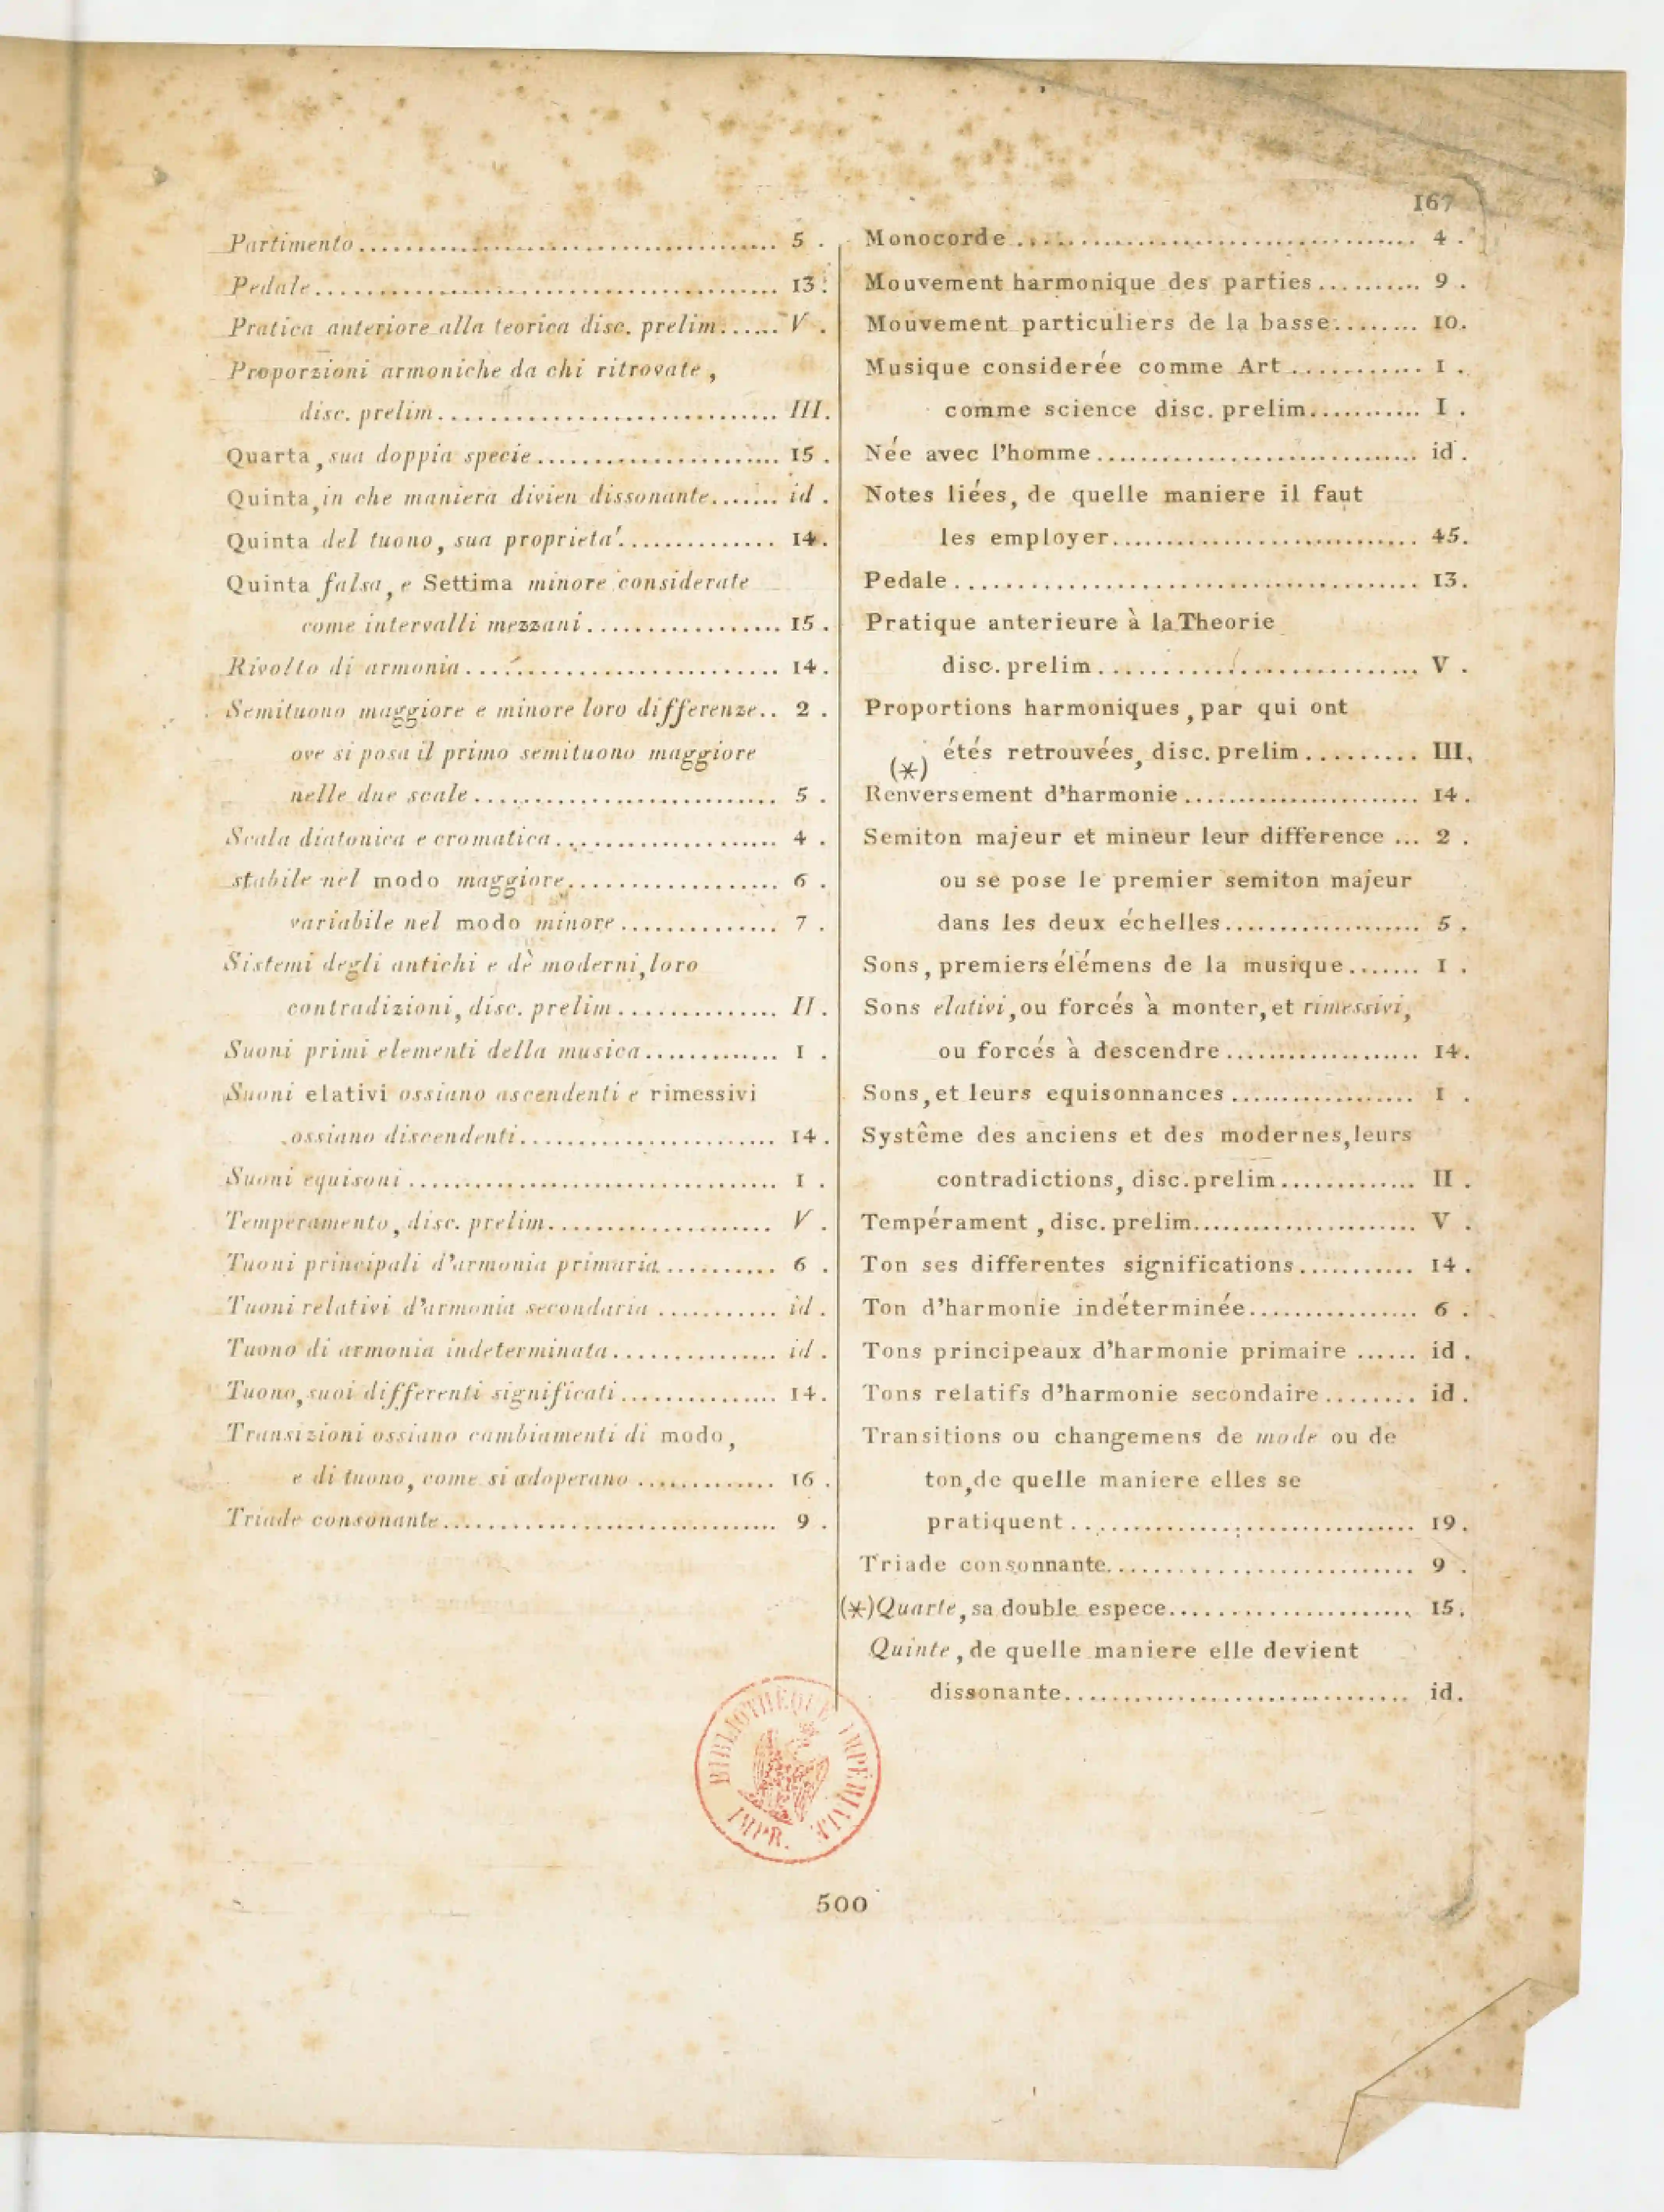 167
Partimento.................................... 5 .
Pedale........................................ 13.
Pratica anteriore alla teorica disc. prelim...... V .
Proporzioni armoniche da chi ritrovate ,
disc. prelim............................. III.
Quarta, sua doppia specie...................... 15 .
Quinta, in che maniera divien dissonante....... id .
Quinta del tuono, sua proprieta'.............. 14.
Quinta falsa, e Settima minore considerate
come intervalli mezzani................. 15 .
Rivolto di armonia........................... 14.
Semituono maggiore e minore loro differenze.. 2 .
ove si posa il primo semituono maggiore
nelle due scale.......................... 5 .
Scala diatonica e cromatica.................... 4 .
stabile nel modo maggiore.................. 6 .
variabile nel modo minore.............. 7 .
Sistemi degli antichi e dè moderni, loro
contradizioni, disc. prelim.............. II.
Suoni primi elementi della musica............. 1 .
Suoni elativi ossiano ascendenti e rimessivi
ossiano discendenti...................... 14.
Suoni equisoni................................. 1 .
Temperamento, disc. prelim.................... V .
Tuoni principali d'armonia primaria.......... 6 .
Tuoni relativi d'armonia secondaria ........... id .
Tuono di armonia indeterminata............... id .
Tuono, suoi differenti significati.............. 14.
Transizioni ossiano cambiamenti di modo,
e di tuono, come si adoperano ............. 16 .
Triade consonante.............................. 9 .
Monocorde ................................... 4 .
Mouvement harmonique des parties .......... 9 .
Mouvement particuliers de la basse........ 10.
Musique considerée comme Art ............ 1 .
comme science disc. prelim........... I .
Née avec l'homme............................ id .
Notes liées, de quelle maniere il faut
les employer........................... 45.
Pedale........................................ 13.
Pratique anterieure à la Theorie
disc. prelim............................ V .
Proportions harmoniques, par qui ont
étés retrouvées, disc. prelim.......... III.
(*)
Renversement d'harmonie...................... 14.
Semiton majeur et mineur leur difference ... 2 .
ou se pose le premier semiton majeur
dans les deux échelles................... 5 .
Sons, premiers élémens de la musique....... 1 .
Sons elativi, ou forcés à monter, et rimessivi,
ou forcés à descendre ................... 14.
Sons, et leurs equisonnances .................. 1 .
Systême des anciens et des modernes, leurs
contradictions, disc. prelim............. II .
Tempérament , disc. prelim...................... V .
Ton ses differentes significations........... 14 .
Ton d'harmonie indéterminée................ 6 .
Tons principeaux d'harmonie primaire ...... id .
Tons relatifs d'harmonie secondaire........ id .
Transitions ou changemens de mode ou de
ton, de quelle maniere elles se
pratiquent............................... 19.
Triade consonnante........................... 9 .
(*) Quarte, sa double espece...................... 15.
Quinte, de quelle maniere elle devient
dissonante............................... id.
BIBLIOTHÈQUE IMPÉRIALE
IMPR.
500